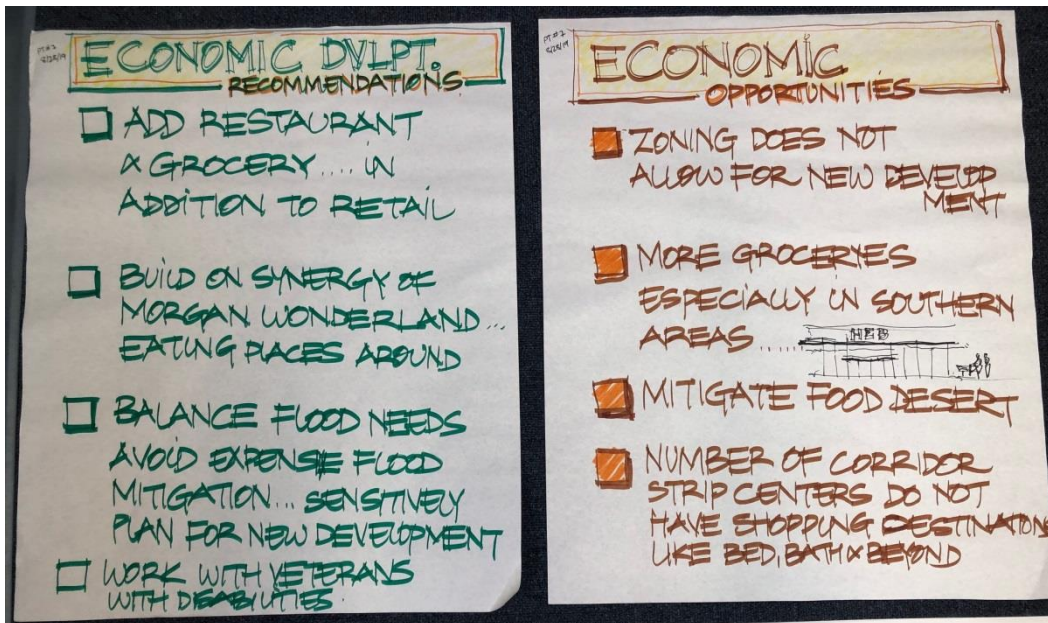 PT#2
ECONOMIC DVLPT.
RECOMMENDATIONS
ADD RESTAURANT
& GROCERY.... IN
ADDITION TO RETAIL
BUILD ON SYNERGY OF
MORGAN WONDERLAND...
EATING PLACES AROUND
BALANCE FLOOD NEEDS
AVOID EXPENSIE FLOOD
MITIGATION... SENSITIVELY
PLAN FOR NEW DEVELOPMENT
WORK WITH VETERANS
WITH DISABILITIES.
PT#2
ECONOMIC
OPPORTUNITIES
ZONING DOES NOT
ALLOW FOR NEW DEVELOP
MENT
MORE GROCERYES
ESPECIALLY IN SOUTHERN
AREAS ......
HEB
MITIGATE FOOD DESERT
NUMBER OF CORRIDOR
STRIP CENTERS DO NOT
HAVE SHOPPING DESTINATIONS
LIKE BED, BATH & BEYOND